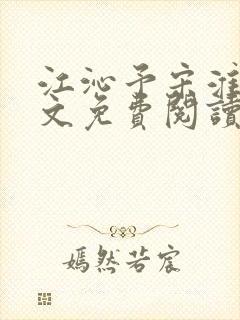 江沁予宋淮
文免費閱讀
嫣然若宸